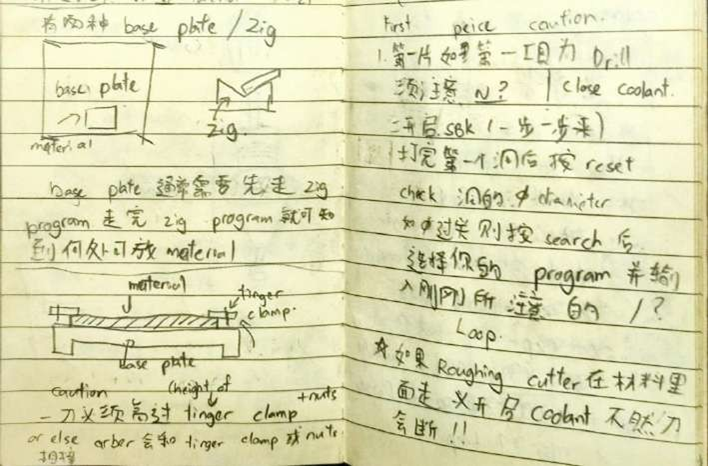 有两种 base plate / Zig
base plate
Zig.
material
base plate 通常需要先走 Zig
program 走完 zig program 就可知
到何处可放 material
material
finger
clamp.
base plate
caution (height of + nuts
一刀必须高过 finger clamp
or else arber 会和 finger clamp 或 nuts
相撞
First peice caution.
1. 第一片如果第一工因为 Drill
须注意 N? | close coolant.
开启 SBK (一步一步来)
打完第一个洞后按 reset
check 洞的 φ diameter
如 φ 过关则按 search 后
选择你的 program 并输
入刚刚所注意的 N?
Loop.
☆ 如果 Roughing cutter 在材料里
面走 必开启 coolant 不然刀
会断 !!